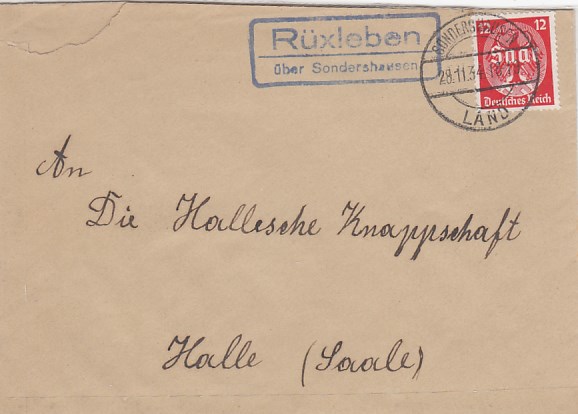 Rüxleben
über Sondershausen
28.11.34
LAND
12 12
Saar
Deutsches Reich
An
Die Hallesche Knappschaft
Halle (Saale)